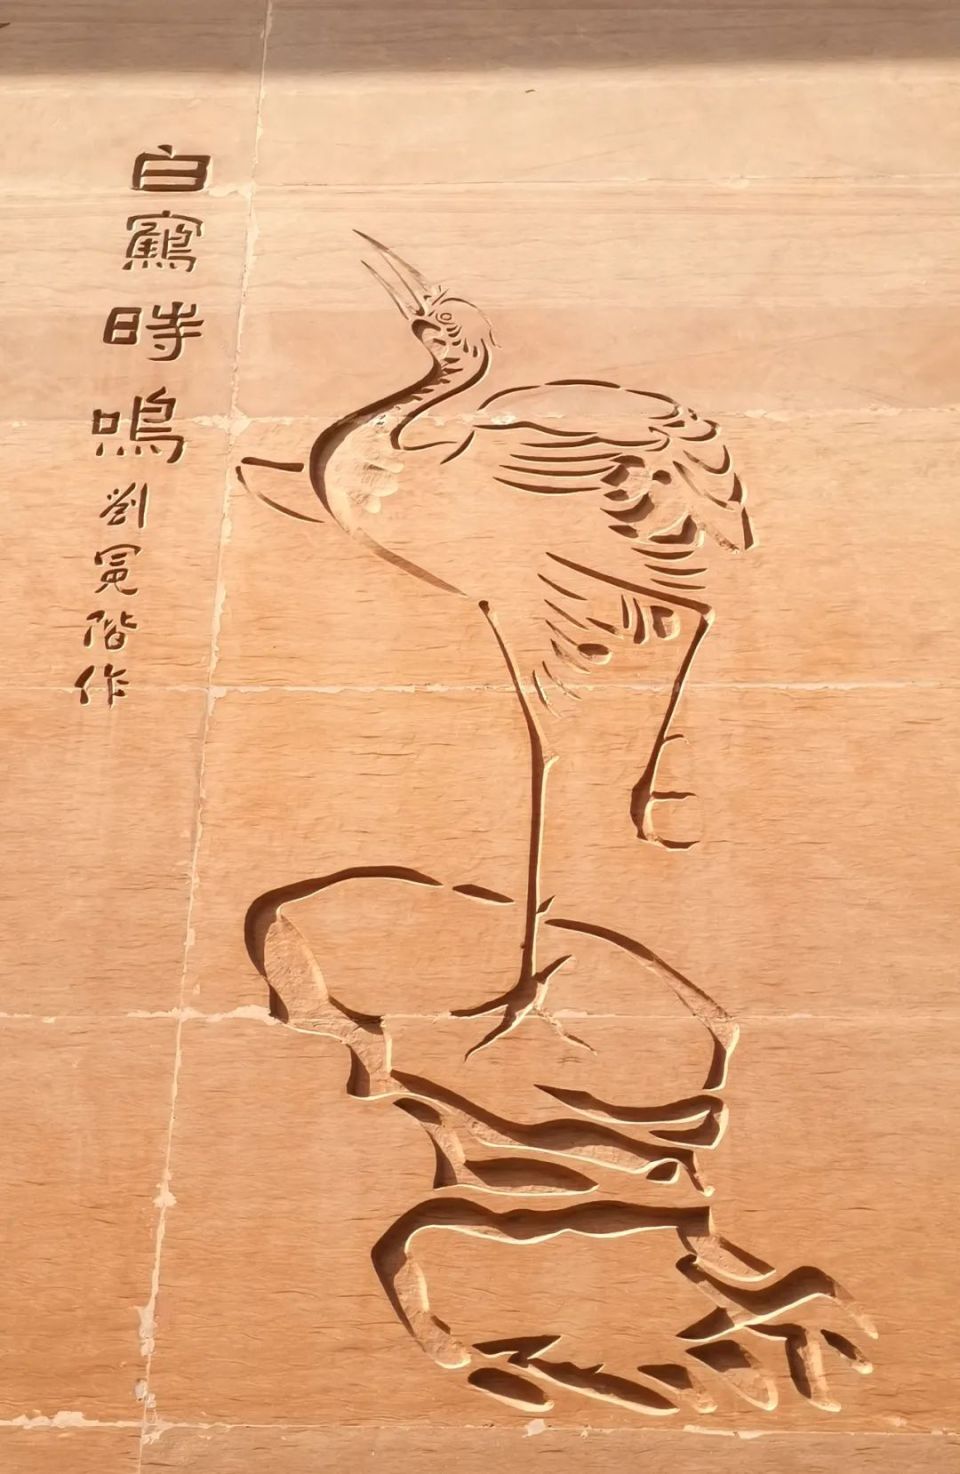 白鶴時鳴 劉冕階作